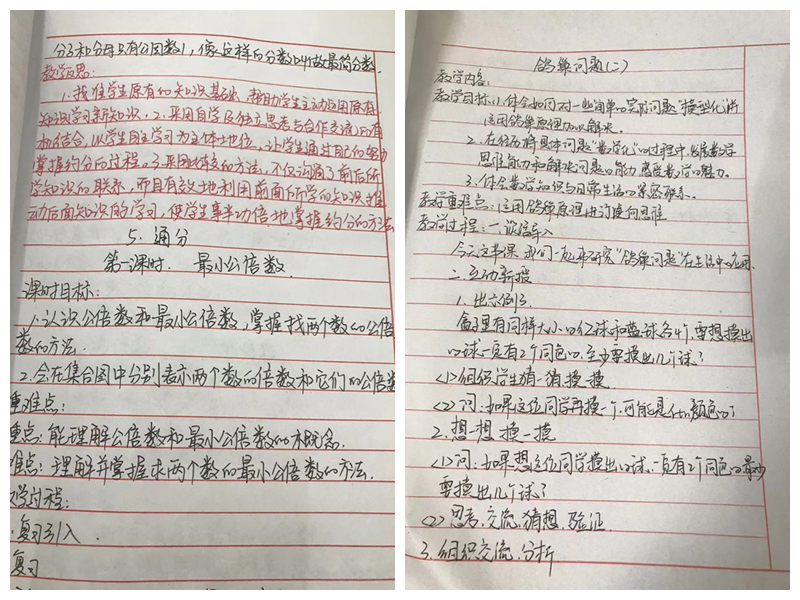 分子和分母只有公因数1，像这样的分数叫做最简分数.
教学反思:
1.找准学生原有的知识基础，帮助学生主动运用原有
知识学习新知识.2.采用自学及独立思考与合作交流的有
机结合,以学生自主学习为主体地位，让学生通过自己的努力
掌握约分的过程.3.采用对比的方法，不仅沟通了前后所
学知识的联系，而且有效地利用前面所学的知识推
动后面知识的学习，使学生事半功倍地掌握约分的方法
5.通分
第一课时. 最小公倍数.
课时目标:
1.认识公倍数和最小公倍数,掌握找两个数的公倍
数的方法.
2.会在集合图中分别表示两个数的倍数和它们的公倍数
重难点:
重点:能理解公倍数和最小公倍数的概念.
难点:理解并掌握求两个数的最小公倍数的方法.
学过程:
.复习引入.
复习
鸽巢问题(二)
教学内容:
教学目标:1.体会如何对一些简单的实际问题"模型化",将
运用鸽巢原理加以解决.
2.在经历将具体问题"数学化"的过程中,发展数学
思维能力和解决问题的能力,感受数学的魅力.
3.体会数学知识与日常生活的紧密联系.
教学重难点:运用鸽巢原理进行逆向思维
教学过程:一.谈话导入
今天这节课,我们一起来研究"鸽巢问题"在生活中的应用.
二.互动新授
1.出示例3.
盒子里有同样大小的红球和蓝球各4个,要想摸出
的球一定有2个同色的,至少要摸出几个球?
<1>组织学生猜一猜,摸一摸.
<2>问:如果这位同学再摸一个,可能是什么颜色的?
2.想一想 摸一摸
<1>问:如果想这位同学摸出的球,一定有2个同色的,最少
要摸出几个球?
<2>思考、交流、猜想、验证
3.组织交流、分析